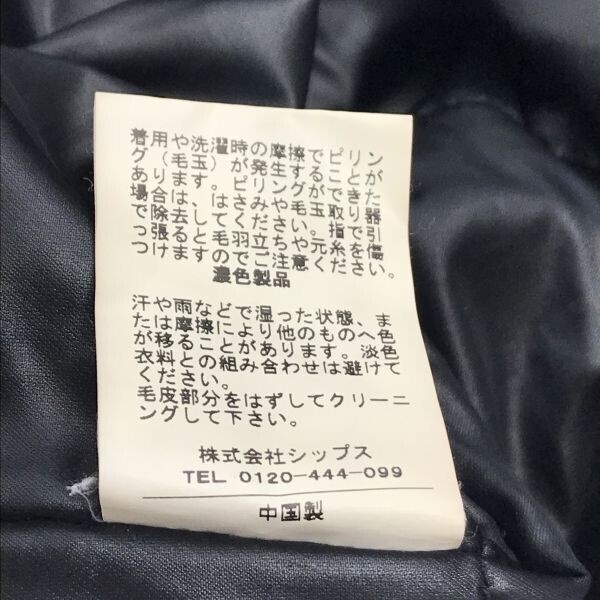 着用や洗濯時の摩擦でピリン
グ(毛玉)が発生することが
あります。ピリングができた
場合は、はさみや毛玉取り器
で除去してください。指で引
っ張ると毛羽立ちや元糸を傷
つけますのでご注意ください。
濃色製品
汗や雨などで湿った状態、ま
たは摩擦により他のものへ色
が移ることがあります。淡色
衣料との組み合わせは避けて
ください。
毛皮部分をはずしてクリーニ
ングして下さい。
株式会社シップス
TEL 0120-444-099
中国製